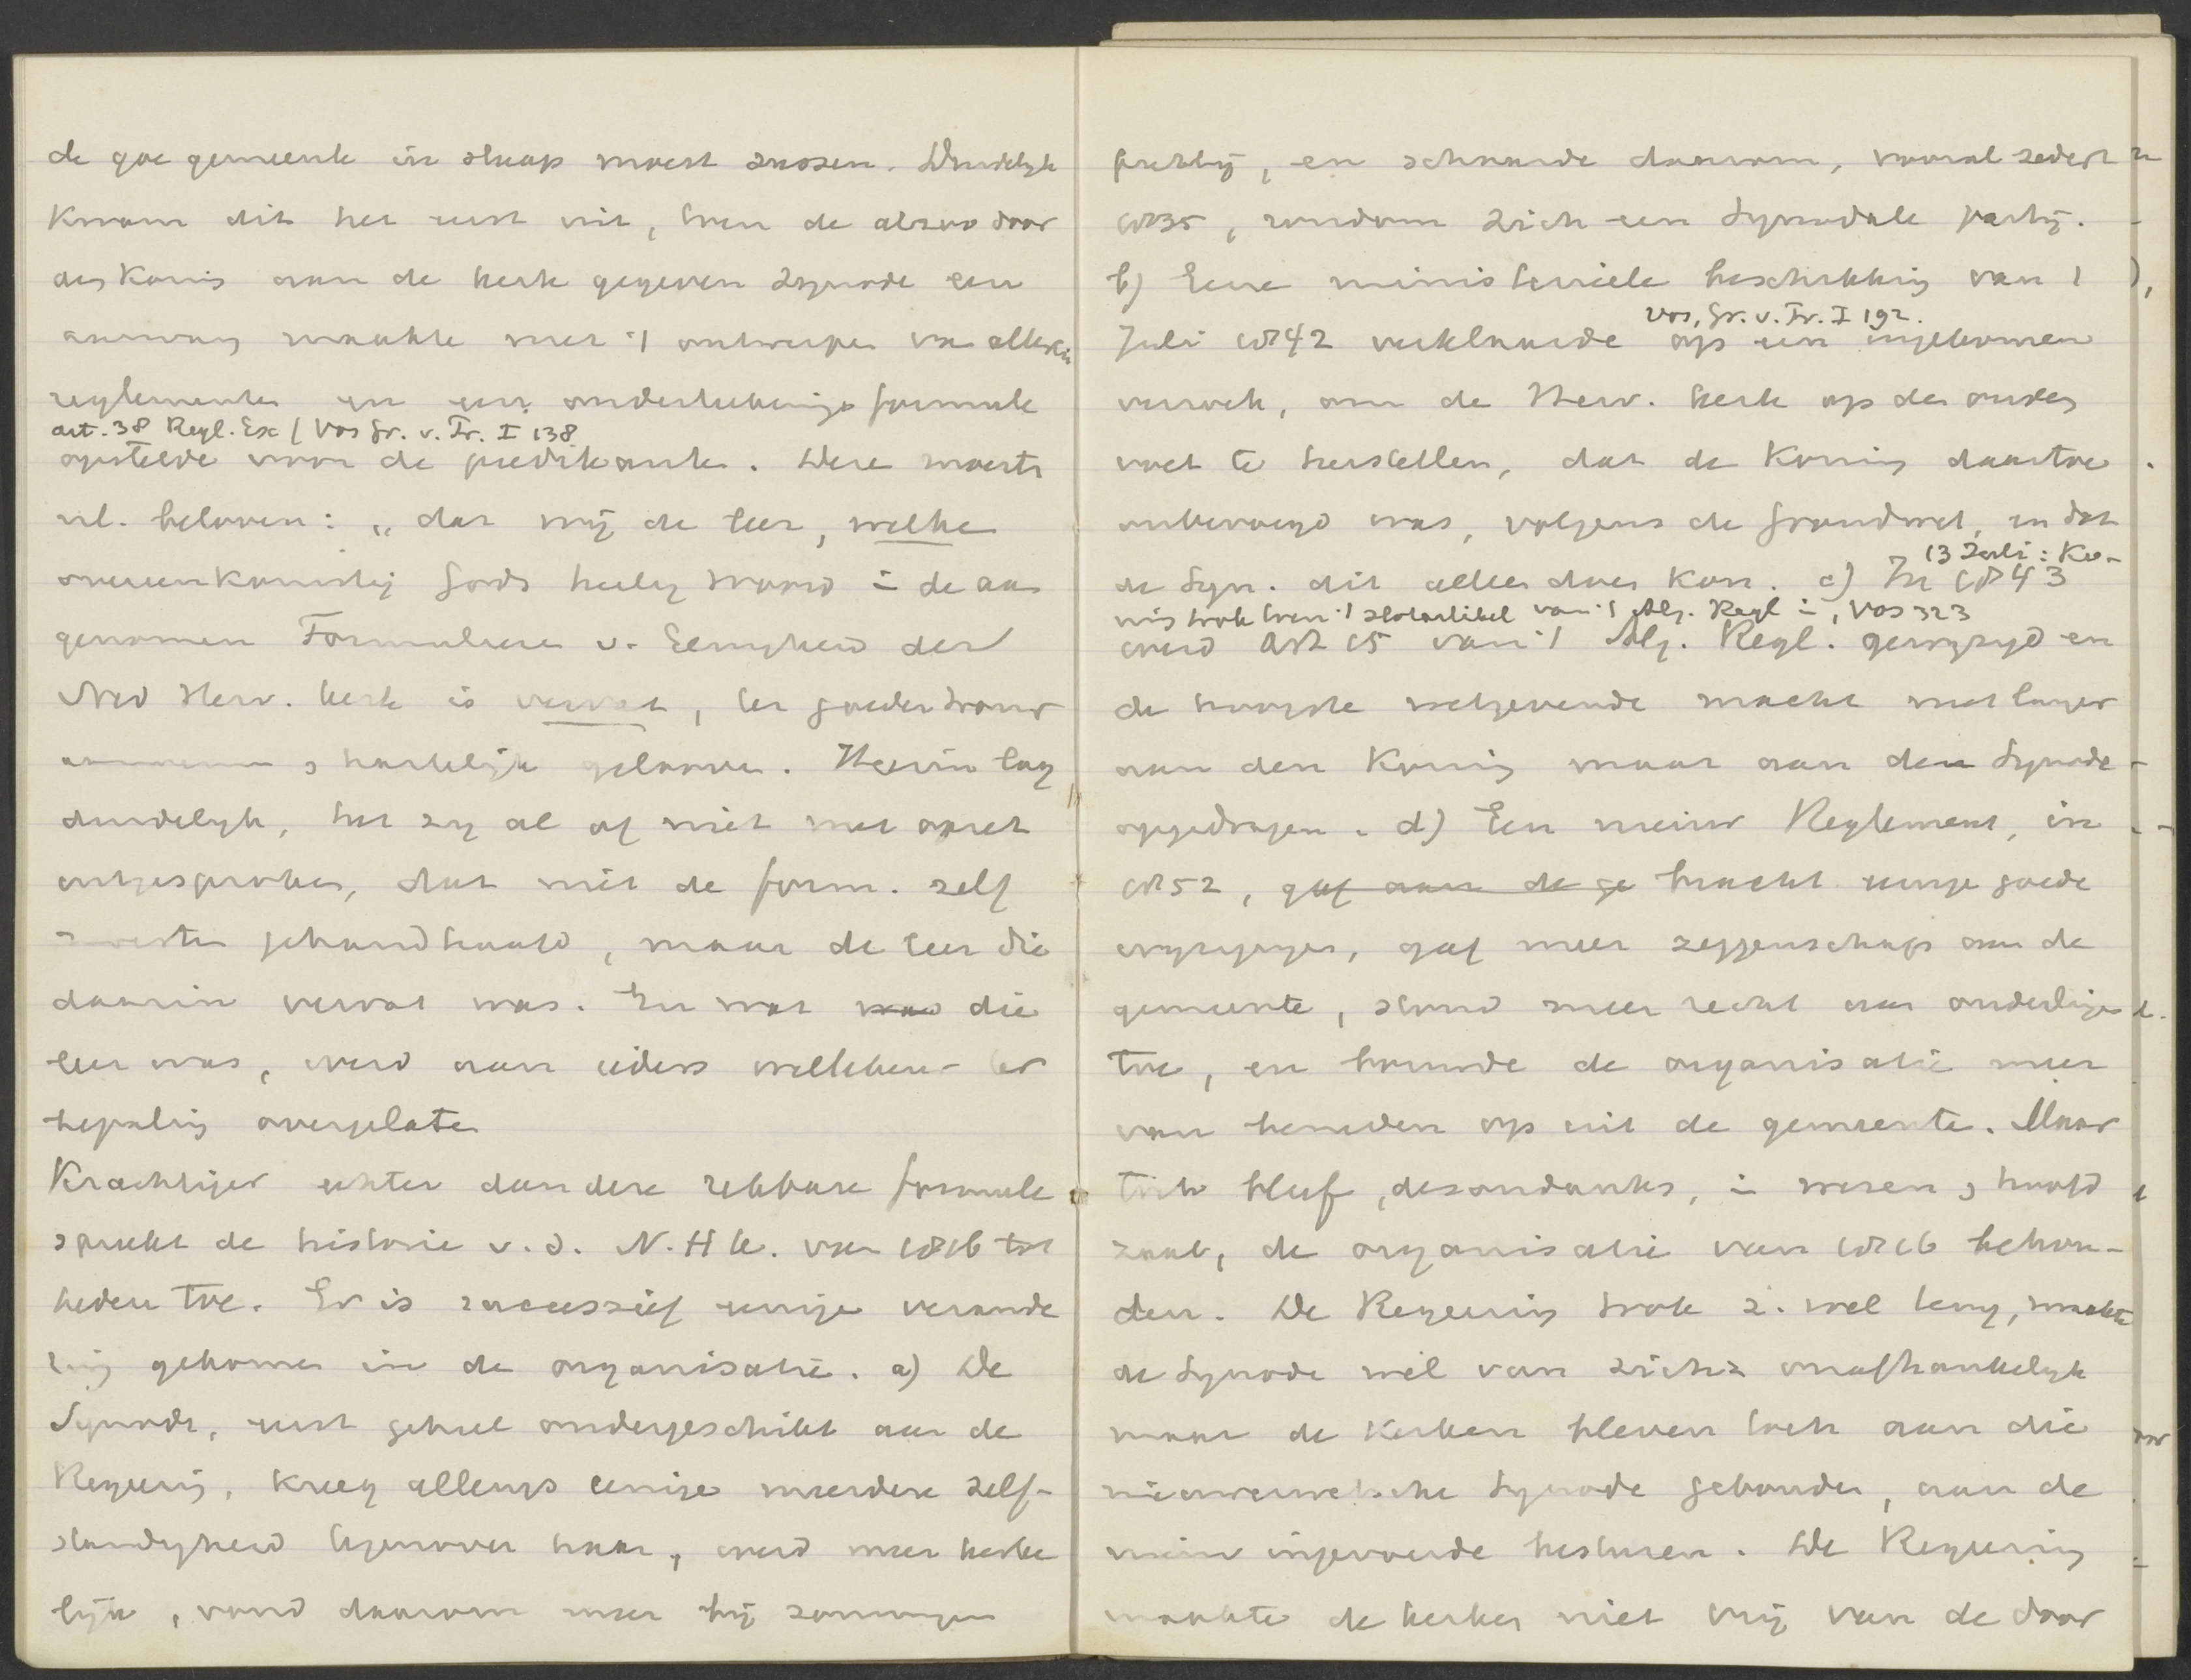 de goe gemeente in slaap moest sussen. Duidelijk
kwam dit het eerst uit, toen de alzoo door
den Koning aan de kerk gegeven Synode een
aanvang maakte met 't ontwerpen van allerlei
reglementen en een onderteekeningsformule
art. 38 Regl. Ex / Vos Gr. v. Tr. I 138
opstelde voor de predikanten. Deze moesten
nl. beloven: „dat wij de leer, welke
overeenkomstig Gods heilig Woord in de aan
genomen Formulieren v. Eenigheid der
Ned Herv. kerk is vervat, ter goeder trouw
aannemen en hartelijk gelooven. Hierin lag
duidelijk, het zij al of niet met opzet
uitgesproken, dat niet de form. zelf
moesten gehandhaafd, maar de leer die
daarin vervat was. En wat was die
leer was, werd aan ieders willekeur ter
bepaling overgelaten
Krachtiger echter dan deze rekbare formule
spreekt de historie v. d. N. H K. van 1816 tot
heden toe. Er is successief eenige verande
ring gekomen in de organisatie. a) De
Synode, eerst geheel ondergeschikt aan de
Regeering, kreeg allengs eenige meerdere zelf-
standigheid tegenover haar, werd meer kerke
lijk, vond daarom meer bij sommigen
partij, en schaarde daarom, vooral sedert
1835, rondom zich een Synodale partij.
b) Eene ministerieele beschikking van 1
Vos, Gr. v. Tr. I 192.
Juli 1842 verklaarde op een ingekomen
verzoek, om de Herv. kerk op den ouden
voet te herstellen, dat de Koning daartoe
onbevoegd was, volgens de Grondwet, en dat
13 Juli: Ko-
de Syn. dit alleen doen kon. c) In 1843
ning trok toen 't slotartikel van 't Alg. Regl in, Vos 323
werd Art 15 van 't Alg. Regl. gewijzigd en
de hoogste wetgevende macht niet langer
aan den Koning maar aan den Synode
opgedragen. d) Een nieuw Reglement, in
1852, gaf aan de ge bracht eenige goede
wijzigingen, gaf meer zeggenschap aan de
gemeente, stond meer recht aan ouderlingen
toe, en bouwde de organisatie meer
van beneden op uit de gemeente. Maar
toch bleef, desondanks, in wezen en hoofd
zaak, de organisatie van 1816 behou-
den. De Regeering trok z. wel terug, maakte
de Synode wel van zich onafhankelijk
maar de kerken bleven toch aan die
nieuwerwetsche Synode gebonden, aan de
nieuw ingevoerde besturen. De Regeering
maakte de kerken niet vrij van de door